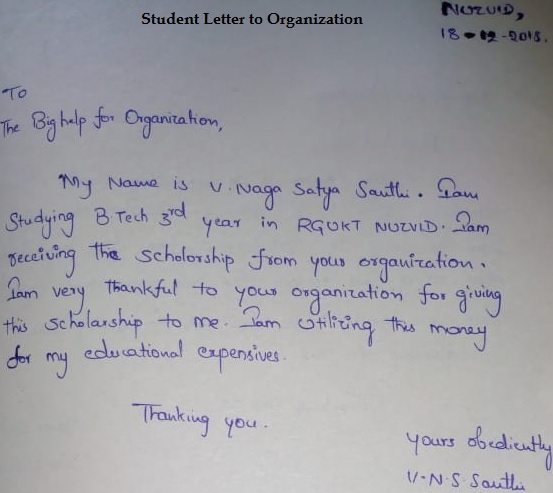 Student Letter to Organization
NUZVID,
18-12-2018.
To
The Big help for Organization,
My Name is V. Naga Satya Santhi. Iam
Studying B Tech 3rd year in RGUKT NUZVID. Iam
receiving the scholorship from your organization.
Iam very thankful to your organization for giving
this scholarship to me. Iam utilizing this money
for my educational expensives.
Thanking you.
yours obediently
V.N.S. Santhi